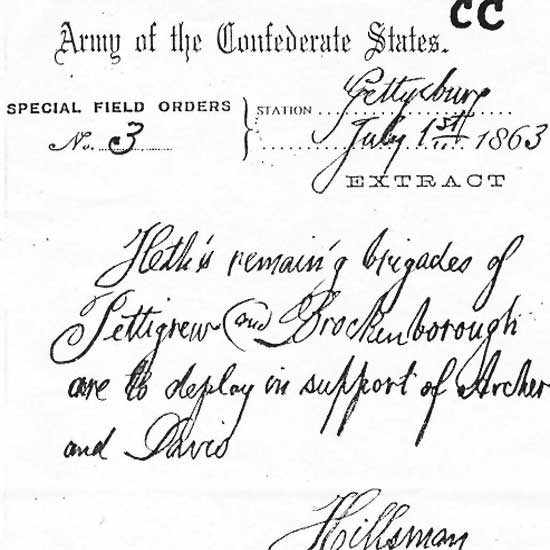 CC
Army of the Confederate States.
SPECIAL FIELD ORDERS
No. 3
STATION Gettysburg
July 1st 1863
EXTRACT
Heth's remain'g brigades of
Pettigrew and Brockenborough
are to deploy in support of Archer
and Davis
Hillsman